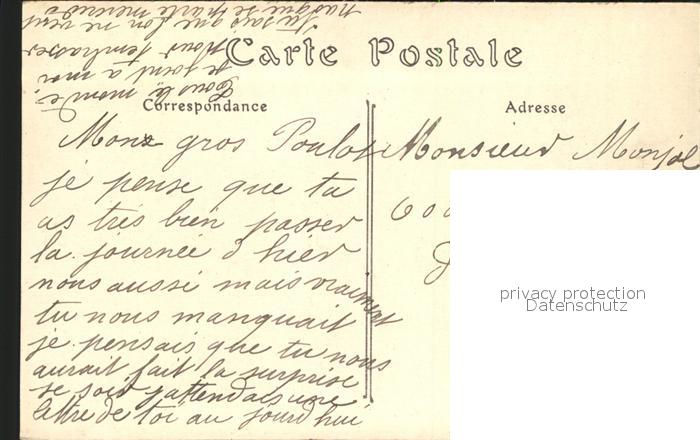 Carte Postale
Correspondance
Adresse
Mon gros Poulot
je pense que tu
as très bien passer
la journée d'hier
nous aussi mais vraiment
tu nous manquait
je pensais que tu nous
aurait fait la surprise
se soir j'attendais une
lettre de toi au jourd'hui
Tous le monde
se joint a moi
pour t'embrasser
Tu sais que l'on ne vera
pas que se
Monsieur Monjol
600
privacy protection
Datenschutz